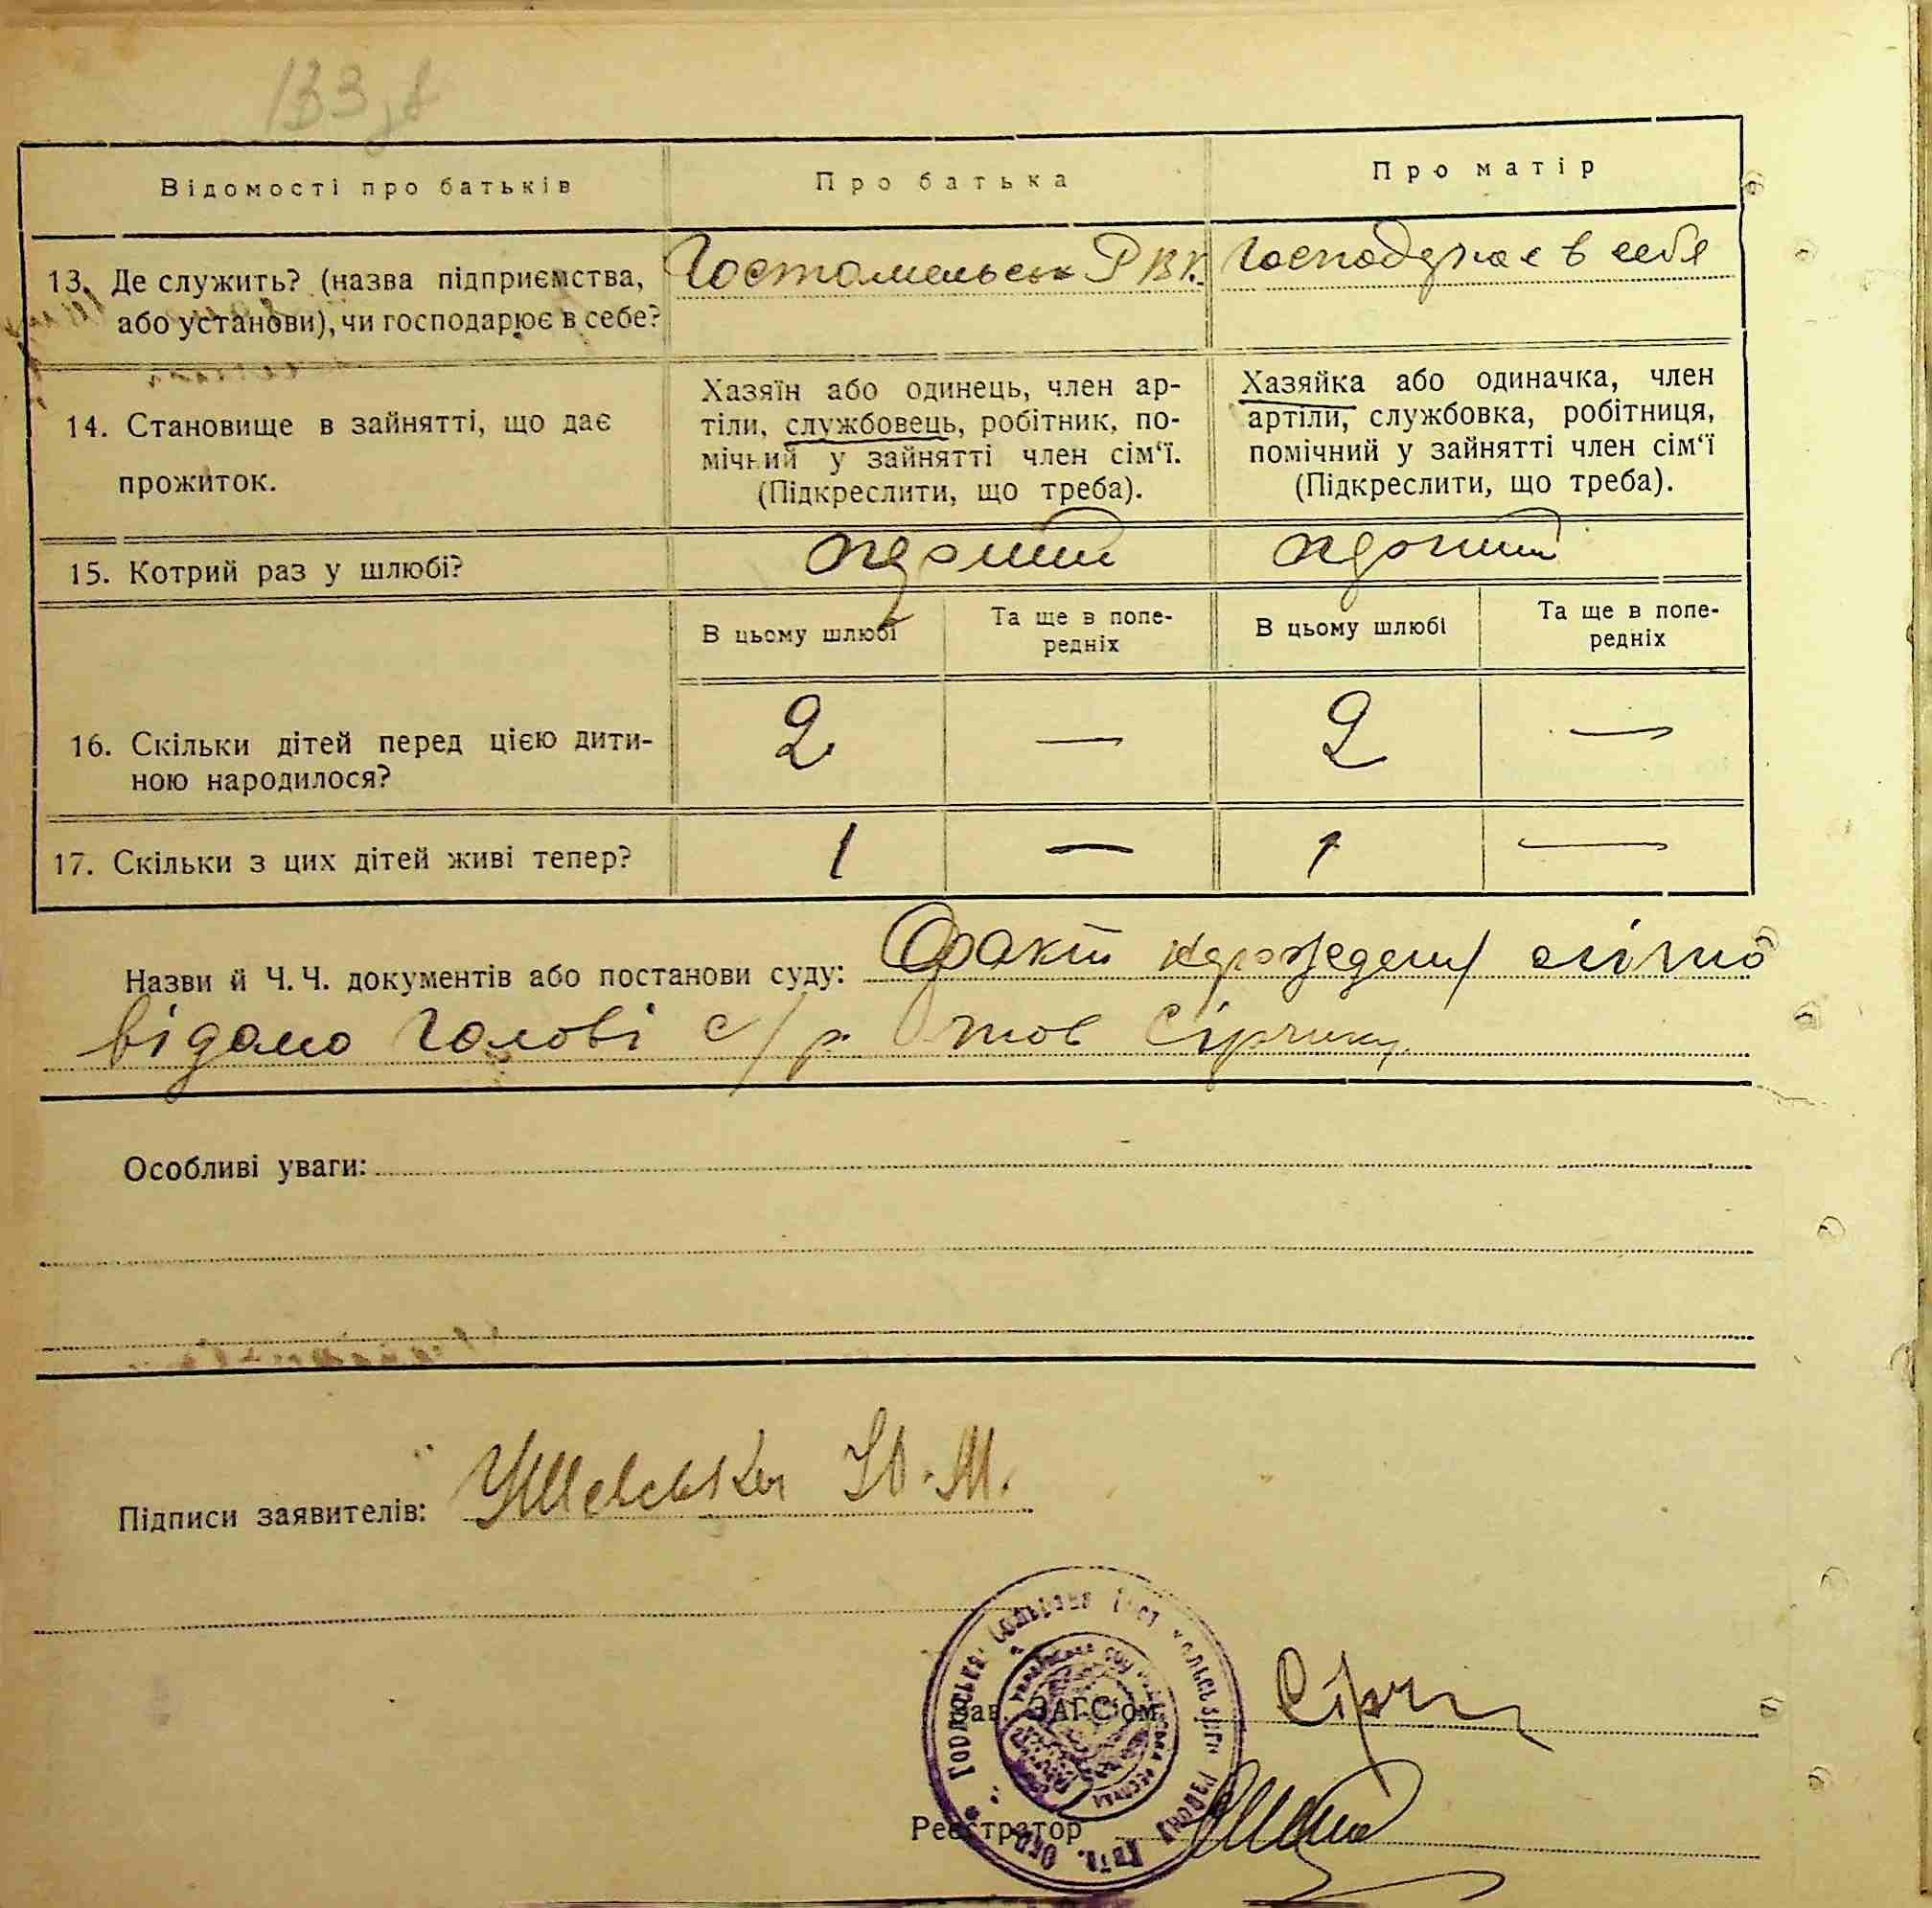 133
Відомості про батьків
Про батька
Про матір
13. Де служить? (назва підприємства,
або установи), чи господарює в себе?
РВК.
Господарює в себе
14. Становище в зайнятті, що дає
прожиток.
Хазяїн або одинець, член ар-
тіли, службовець, робітник, по-
мічний у зайнятті член сім‘ї.
(Підкреслити, що треба).
Хазяйка або одиначка, член
артіли, службовка, робітниця,
помічний у зайнятті член сім‘ї
(Підкреслити, що треба).
15. Котрий раз у шлюбі?
перший
перший
В цьому шлюбі
Та ще в попе-
редніх
В цьому шлюбі
Та ще в попе-
редніх
16. Скільки дітей перед цією дити-
ною народилося?
2 — 2 —
17. Скільки з цих дітей живі тепер?
1 — 1 —
Назви й Ч. Ч. документів або постанови суду: Факт
відомо голові с/р. тов Сірику
Особливі уваги:
Підписи заявителів: Ю. М.
Зав. ЗАГС‘ом
Реєстратор